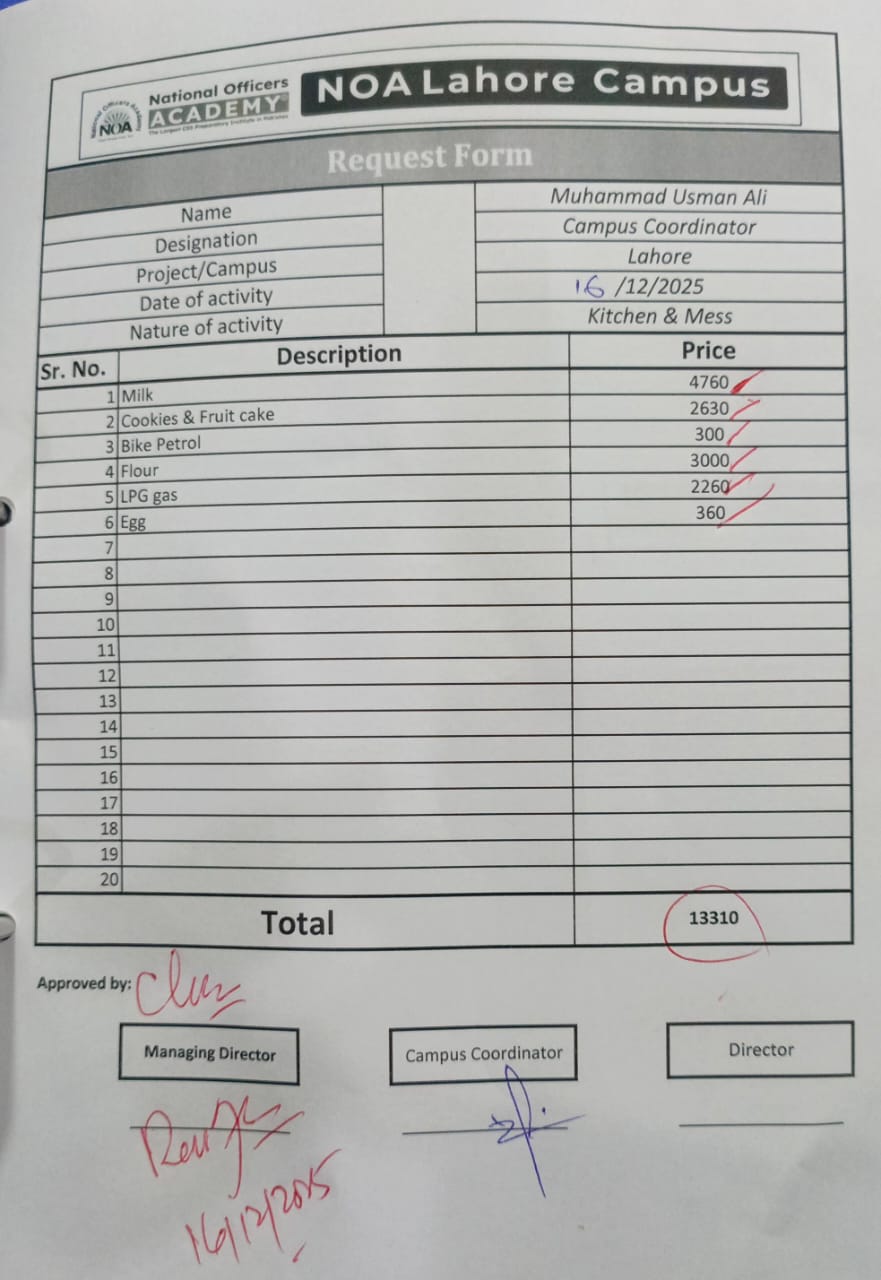 National Officers
ACADEMY
The Largest CSS Preparatory Institute in Pakistan
National Officers Academy
NOA
NOA Lahore Campus
Request Form
Name Muhammad Usman Ali
Designation Campus Coordinator
Project/Campus Lahore
Date of activity 16/12/2025
Nature of activity Kitchen & Mess
Sr. No. Description Price
1 Milk 4760
2 Cookies & Fruit cake 2630
3 Bike Petrol 300
4 Flour 3000
5 LPG gas 2260
6 Egg 360
7
8
9
10
11
12
13
14
15
16
17
18
19
20
Total 13310
Approved by:
Managing Director Campus Coordinator Director
16/12/2025